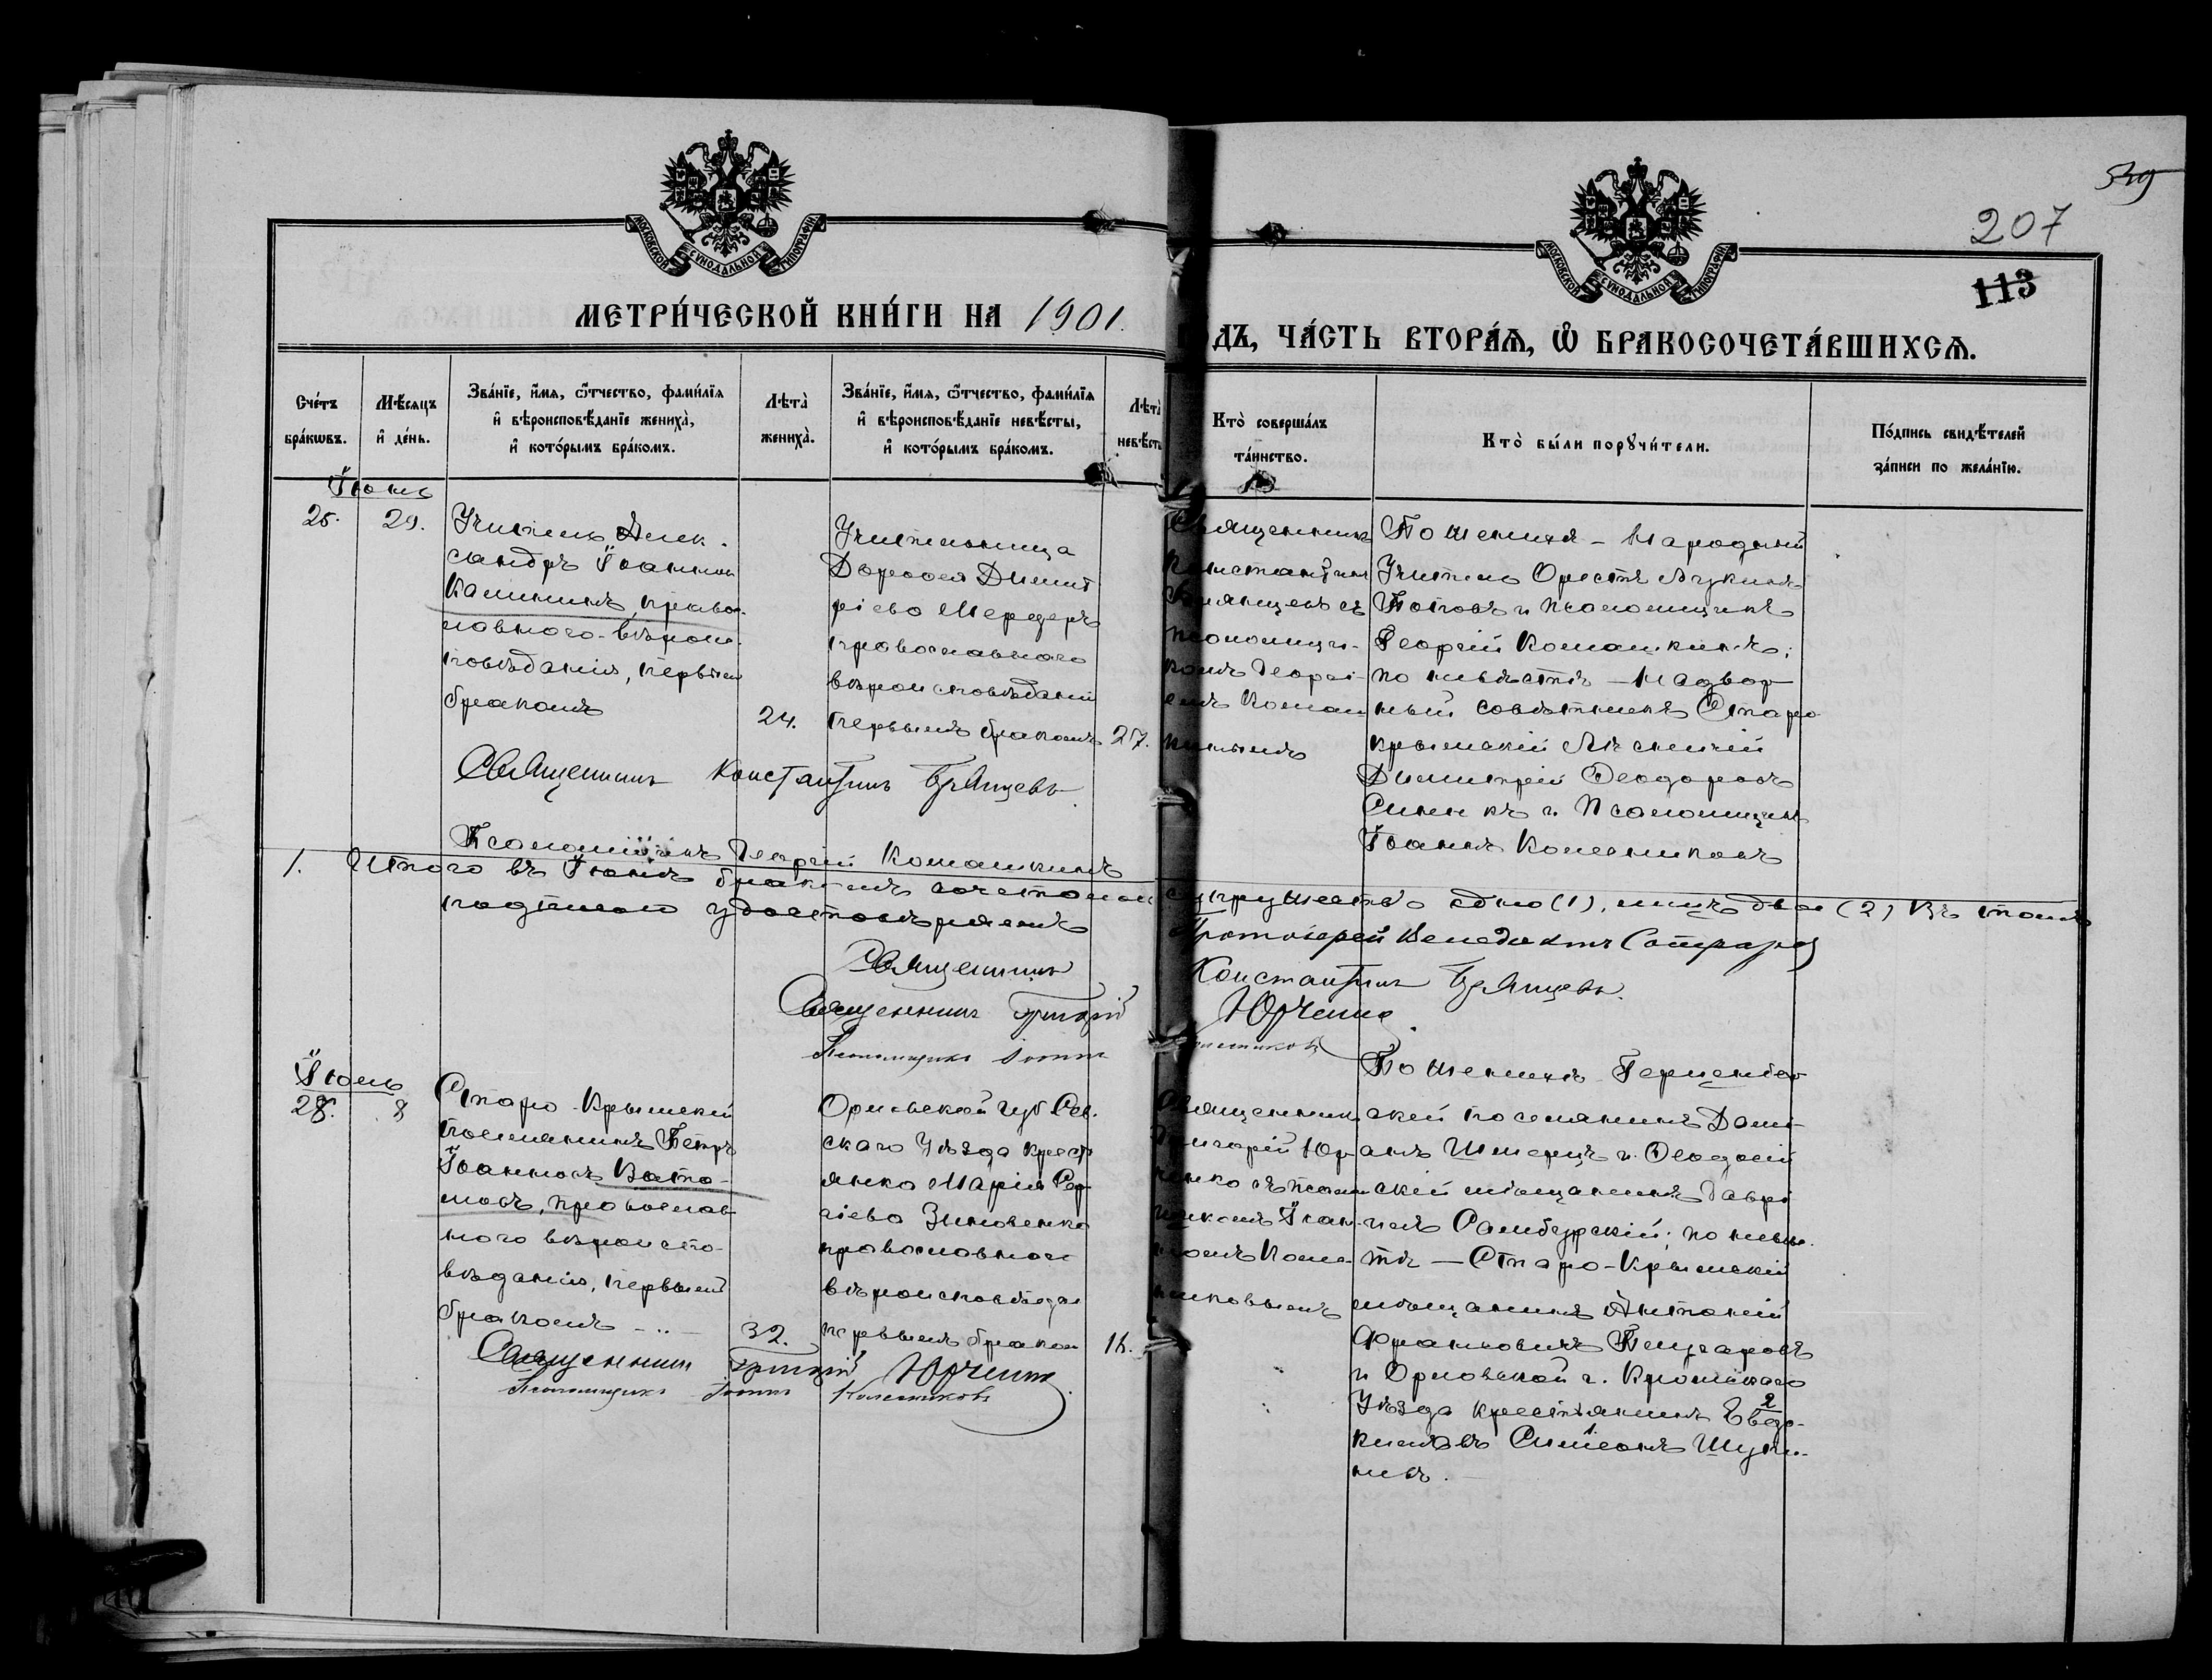 539
207
113
МОСКОВСКОЙ СУНОДАЛЬНОЙ ТИПОГРАФІИ
МОСКОВСКОЙ СУНОДАЛЬНОЙ ТИПОГРАФІИ
МЕТРИ́ЧЕСКОЙ КНИ́ГИ НА 1901.
ДЪ, ЧА́СТЬ ВТОРА́Ѧ, Ѡ҆ БРАКОСОЧЕТА́ВШИХСѦ.
Сче́тъ
бра́кѡвъ.
Мѣ́сяцъ
и҆ де́нь.
Зва́нїе, и҆́мѧ, ѻ҆́тчество, фами́лїѧ
и҆ вѣроисповѣ́данїе жениха̀,
и҆ кото́рымъ бра́комъ.
Лѣта̀
жениха̀.
Зва́нїе, и҆́мѧ, ѻ҆́тчество, фами́лїѧ
и҆ вѣроисповѣ́данїе невѣ́сты,
и҆ кото́рымъ бра́комъ.
Лѣта̀
невѣ́сты
Кто̀ соверша́лъ
та́инство.
Кто̀ бы́ли порꙋчи́тели.
По́дпись свидѣ́телей
за́писи по жела́нїю.
Іюнь
25.
29.
Учитель Алек-
сандръ Іоанновъ
Калининъ, правос-
лавнаго вѣроис-
повѣданія, первымъ
бракомъ
24.
Учительница
Дорофея Димит
ріева Мередеръ
православнаго
вѣроисповѣданія
первымъ бракомъ
27.
Священникъ
Константинъ
Брянцевъ съ
псаломщи-
комъ Георгі-
емъ Комаш
кинымъ
По женихѣ – Народный
Учитель Орестъ Лукинъ
Поповъ и псаломщикъ
Георгій Комашкинъ;
по невѣстѣ – Надвор
ный совѣтникъ Старо
крымскій Лѣсничій
Димитрій Ѳеодоровъ
и Псаломщикъ
Іоаннъ Колесниковъ
Священникъ Константинъ Брянцевъ
Псаломщикъ Георгій Комашкинъ
1. Итого въ Іюнѣ бракомъ сочеталось супружество одно (1), лицъ двое (2) въ томъ
подписью удостовѣряемъ
Протоіерей Венедиктъ
Священникъ Константинъ Брянцевъ.
Священникъ Григорій Юрченко
Псаломщикъ Іоаннъ Колесниковъ
Іюль
28.
8
Старо-Крымскій
поселянинъ Петръ
Іоанновъ Вато-
мовъ, православ
наго вѣроиспо-
вѣданія, первымъ
бракомъ
32.
Орловской губ. Сѣв.
скаго Уѣзда крест
янка Марія Сер
гіева Зиновенко
православнаго
вѣроисповѣдан
первымъ бракомъ
16.
Священникъ
Григорій Юр
ченко съ псалом
щикомъ Іоан
номъ Колес
никовымъ
По женихѣ – Герценберг
скій поселянинъ Дані
илъ Штерцъ и Ѳеодосій
скій мѣщанинъ Гаврі
илъ Самбурскій; по невѣс
тѣ – Старо-Крымскій
мѣщанинъ Антоній
Франковичъ
и Орловской г. Кромскаго
Уѣзда крестьянинъ Евдо-
2
кимовъ Симеонъ
1
Священникъ Григорій Юрченко
Псаломщикъ Іоаннъ Колесниковъ